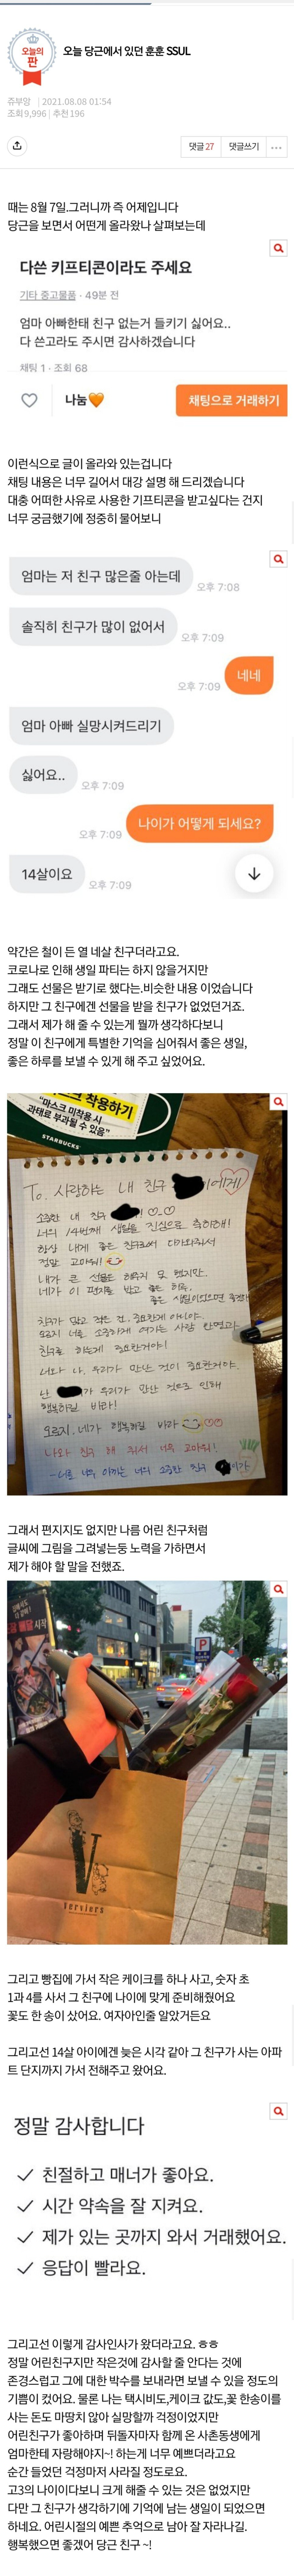 오늘의
판
오늘 당근에서 있던 훈훈 SSUL
쥬부앙 | 2021.08.08 01:54
조회 9,996 | 추천 196
댓글 27
댓글쓰기
때는 8월 7일.그러니까 즉 어제입니다
당근을 보면서 어떤게 올라왔나 살펴보는데
다쓴 키프티콘이라도 주세요
기타 중고물품 · 49분 전
엄마 아빠한태 친구 없는거 들키기 싫어요..
다 쓴고라도 주시면 감사하겠습니다
채팅 1 · 조회 68
나눔🧡
채팅으로 거래하기
이런식으로 글이 올라와 있는겁니다
채팅 내용은 너무 길어서 대강 설명 해 드리겠습니다
대충 어떠한 사유로 사용한 기프티콘을 받고싶다는 건지
너무 궁금했기에 정중히 물어보니
엄마는 저 친구 많은줄 아는데
오후 7:08
솔직히 친구가 많이 없어서
오후 7:09
네네
오후 7:09
엄마 아빠 실망시켜드리기
싫어요..
오후 7:09
나이가 어떻게 되세요?
오후 7:09
14살이요
오후 7:09
약간은 철이 든 열 네살 친구더라고요.
코로나로 인해 생일 파티는 하지 않을거지만
그래도 선물은 받기로 했다는.비슷한 내용 이었습니다
하지만 그 친구에겐 선물을 받을 친구가 없었던거죠.
그래서 제가 해 줄 수 있는게 뭘까 생각하다보니
정말 이 친구에게 특별한 기억을 심어줘서 좋은 생일,
좋은 하루를 보낼 수 있게 해 주고 싶었어요.
착용하기
"마스크 미착용시
과태료 부과될 수 있음"
STARBUCKS
To. 사랑하는 내 친구 에게!
소중한 내 친구
너의 14번째 생일을 진심으로 축하해!
항상 내게 좋은 친구로써 다가와줘서
정말 고마워!
내가 큰 선물은 해줄수 못 했지만,
네가 이 편지를 받고 좋은 하루,
좋은 생일이었으면 좋겠다
친구가 많고 적은 건 중요한게 아니야.
너를 소중하게 여기는 사람 한명이라도
친구로 하는게 중요한거니!
너와 나, 우리가 만난 것이 중요한거야.
난 가 우리가 만난 것으로 인해
행복하길 바라!
오로지, 네가 행복하길 바라
나와 친구 해 줘서 너무 고마워!
-너를 너무 아끼는 너의 소중한 친구 가
그래서 편지지도 없지만 나름 어린 친구처럼
글씨에 그림을 그려넣는둥 노력을 가하면서
제가 해야 할 말을 전했죠.
P
serviers
그리고 빵집에 가서 작은 케이크를 하나 사고, 숫자 초
1과 4를 사서 그 친구에 나이에 맞게 준비해줬어요
꽃도 한 송이 샀어요. 여자아인줄 알았거든요
그리고선 14살 아이에겐 늦은 시각 같아 그 친구가 사는 아파
트 단지까지 가서 전해주고 왔어요.
정말 감사합니다
✓ 친절하고 매너가 좋아요.
✓ 시간 약속을 잘 지켜요.
✓ 제가 있는 곳까지 와서 거래했어요.
✓ 응답이 빨라요.
그리고선 이렇게 감사인사가 왔더라고요. ㅎㅎ
정말 어린친구지만 작은것에 감사할 줄 안다는 것에
존경스럽고 그에 대한 박수를 보내라면 보낼 수 있을 정도의
기쁨이 컸어요. 물론 나는 택시비도,케이크 값도,꽃 한송이를
사는 돈도 마땅치 않아 실망할까 걱정이었지만
어린친구가 좋아하며 뒤돌자마자 함께 온 사촌동생에게
엄마한테 자랑해야지~! 하는게 너무 예쁘더라고요
순간 들었던 걱정마저 사라질 정도로요.
고3의 나이이다보니 크게 해줄 수 있는 것은 없었지만
다만 그 친구가 생각하기에 기억에 남는 생일이 되었으면
하네요. 어린시절의 예쁜 추억으로 남아 잘 자라나길.
행복했으면 좋겠어 당근 친구 ~!